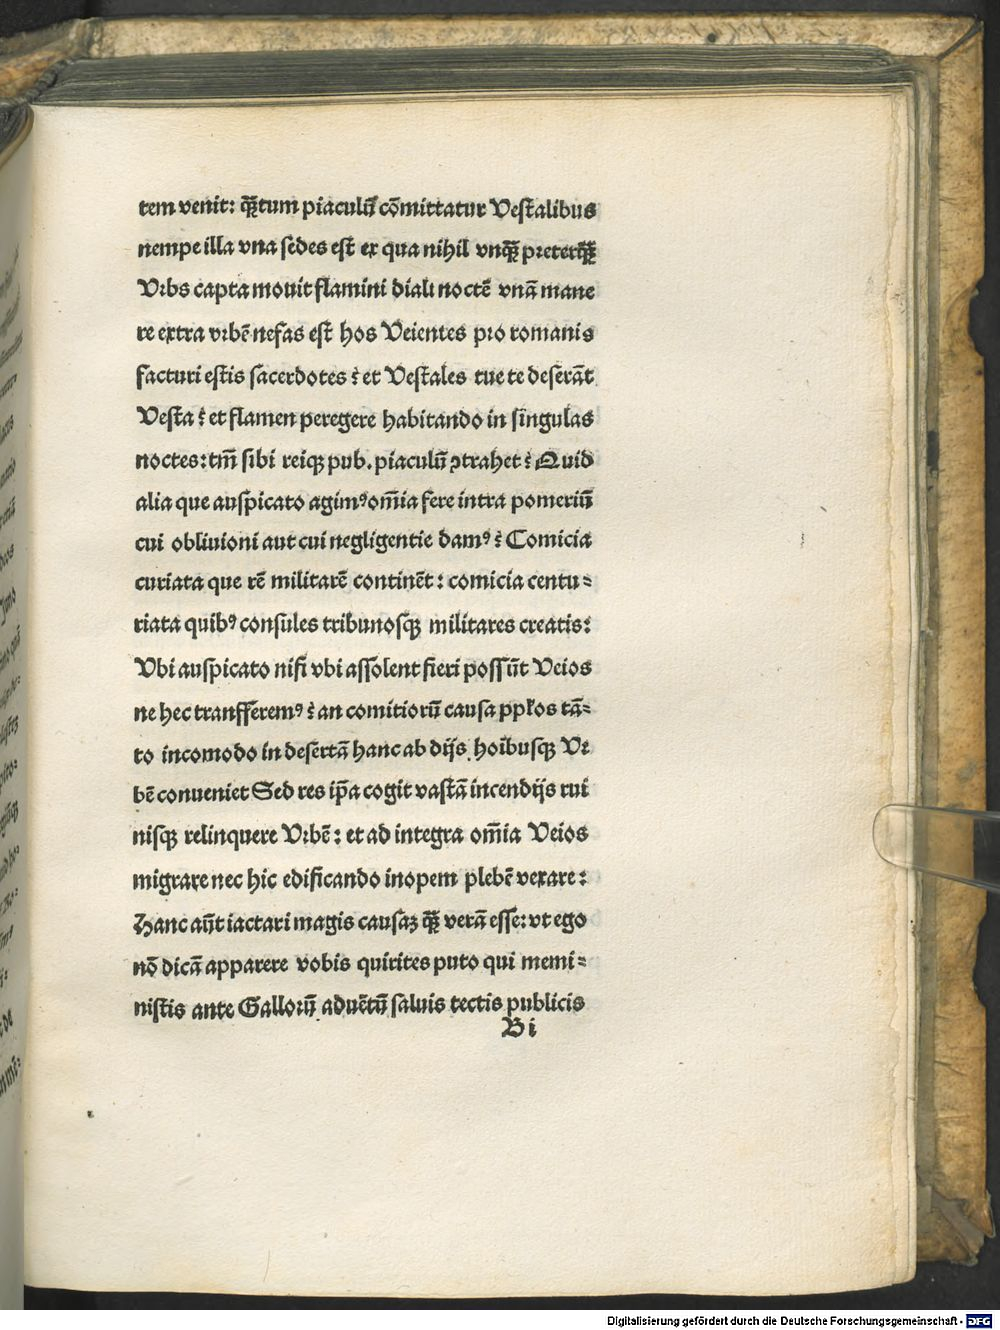 tem venit: q̄ꝫtum piaculū cōmittatur Vestalibus
nempe illa vna sedes est ex qua nihil vnq̄ꝫ preterq̄ꝫ
Vrbs capta mouit flamini diali noctē vnā mane
re extra vrbē nefas est hos Veientes pro romanis
facturi estis sacerdotes? et Vestales tue te deserāt
Vesta? et flamen peregere habitando in sīngulas
noctes: tm̄ sibi reiqꝫ pub. piaculū ꝯtrahet? Quid
alia que auspicato agimꝰ om̄ia fere intra pomeriū
cui obliuioni aut cui negligentie damꝰ? Comicia
curiata que rē militarē continēt: comicia centu⸗
riata quibꝰ consules tribunosqꝫ militares creatis:
Vbi auspicato nisi vbi assolent fieri possūt Veios
ne hec transferremꝰ? an comitiorū causa ppłos tā⸗
to incomodo in desertā hanc ab dijs hoībusqꝫ Vr
bē conueniet Sed res ip̄a cogit vastā incendijs rui
nisqꝫ relinquere Vrbē: et ad integra om̄ia Veios
migrare nec hic edificando inopem plebē vexare:
Hanc aūt iactari magis causaꝫ q̄ꝫ verā esse: vt ego
nō dicā apparere vobis quirites puto qui memi⸗
nistis ante Gallorū aduētū saluis tectis publicis
B i
Digitalisierung gefördert durch die Deutsche Forschungsgemeinschaft - DFG